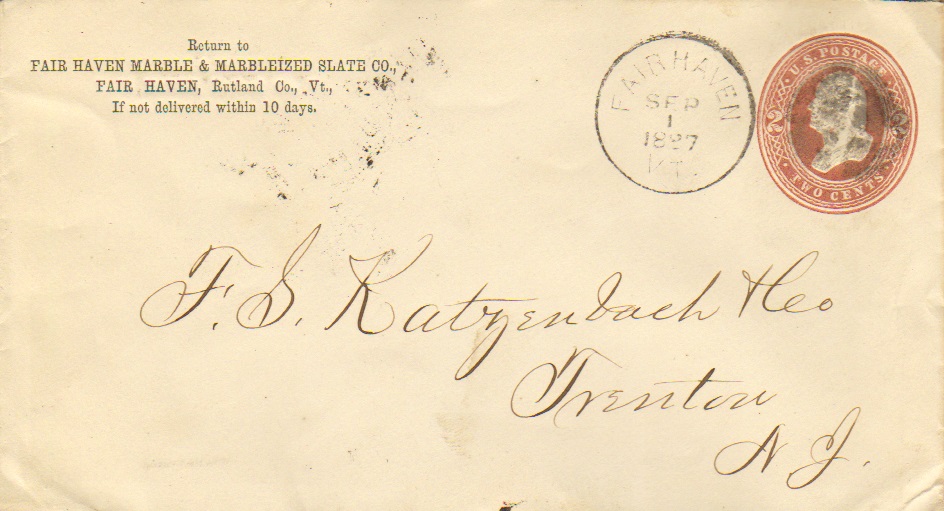 Return to
FAIR HAVEN MARBLE & MARBLEIZED SLATE CO.,
FAIR HAVEN, Rutland Co., Vt.,
If not delivered within 10 days.
FAIR HAVEN
SEP
1
1887
VT.
U.S. POSTAGE
2 2
TWO CENTS
F. S. Katzenbach & Co
Trenton
N. J.